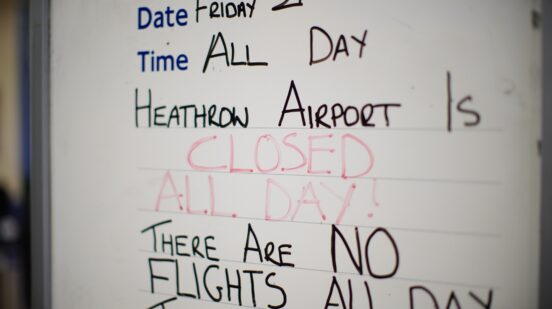 Date FRIDAY 2
Time ALL DAY
HEATHROW AIRPORT IS
CLOSED
ALL DAY!
THERE ARE NO
FLIGHTS ALL DAY